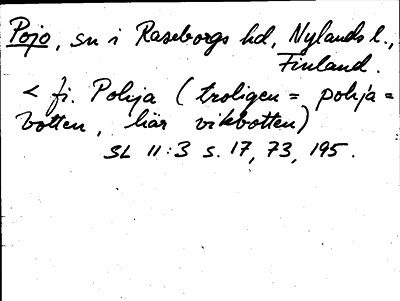 Pojo, sn i Raseborgs hd, Nylands l.,
Finland.
< fi. Pohja (troligen = pohja =
botten, här vikbotten)
SL 11:3 s. 17, 73, 195.